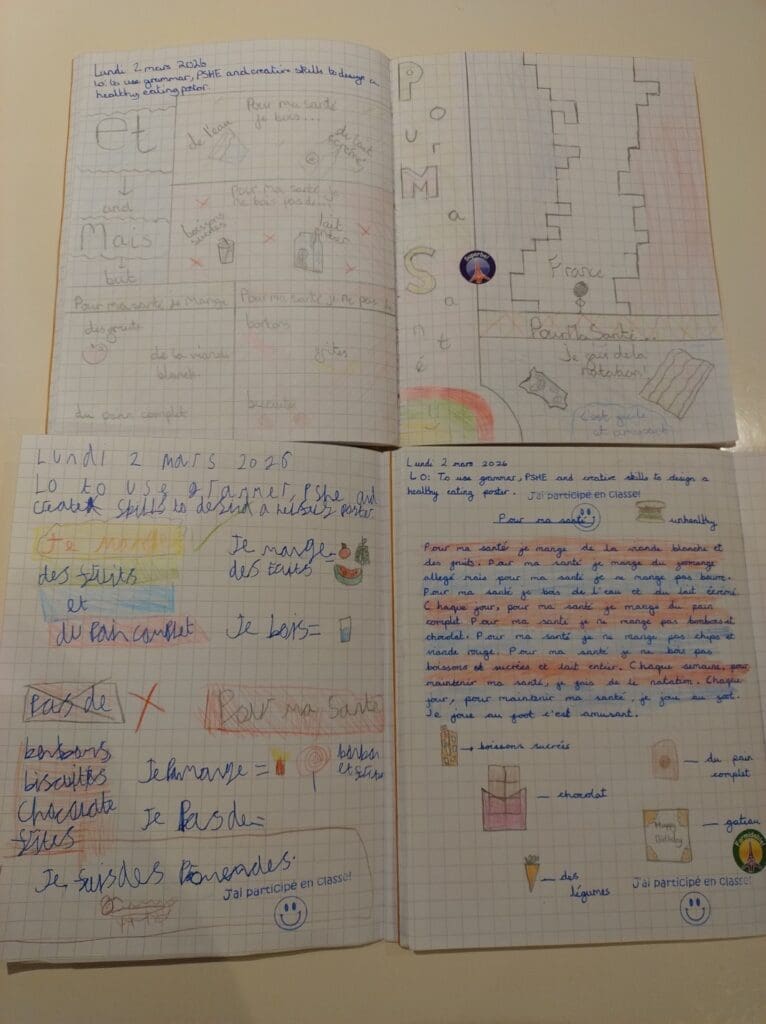 Lundi 2 mars 2026
LO: to use grammar, PSHE and creative skills to design a
healthy eating poster
et
↓
and
Mais
↓
but
Pour ma santé
je bois...
de l'eau
du lait
écrémé
Pour ma santé je
ne bois pas de...
boissons
sucrées
lait
entier
Pour ma santé je Mange
des fruits
de la viande
blanche
du pain complet
Pour ma santé je ne pas
bonbons
frites
biscuits
Pour Ma Santé
Superbe!
France
Pour Ma Santé...
Je fais de la
natation!
c'est
et amusant
Lundi 2 mars 2026
LO to use grammer, pshe and
skills to a poster
Je
des fruits
et
du Pain complet
Je mange=
des fruits
Je bois=
Pas de
Pour ma Santé
bonbons
biscuites
Chocolate
frites
Je Pa mange =
bonbon
et
Je Pas de=
Je fais des
J'ai participé en classe!
Lundi 2 mars 2026
LO: To use grammar, PSHE and creative skills to design a
healthy eating poster.
J'ai participé en classe!
Pour ma santé
unhealthy
Pour ma santé je mange de la viande blanche et
des fruits. Pour ma santé je mange du fromage
allegé mais pour ma santé je ne mange pas beurre.
Pour ma santé je bois de l'eau et du lait écrémé.
Chaque jour, pour ma santé je mange du pain
complet. Pour ma santé je ne mange pas bonbons et
chocolat. Pour ma santé je ne mange pas chips et
viande rouge. Pour ma santé je ne bois pas
boissons et sucrées et lait entier. Chaque semaine, pour
maintenir ma santé, je fais de la natation. Chaque
jour, pour maintenir ma santé, je joue au foot.
Je joue au foot c'est amusant.
→ boissons sucrés
du pain
complet
chocolat
Happy
Birthday
gateau
Formidable!
des
légumes
J'ai participé en classe!